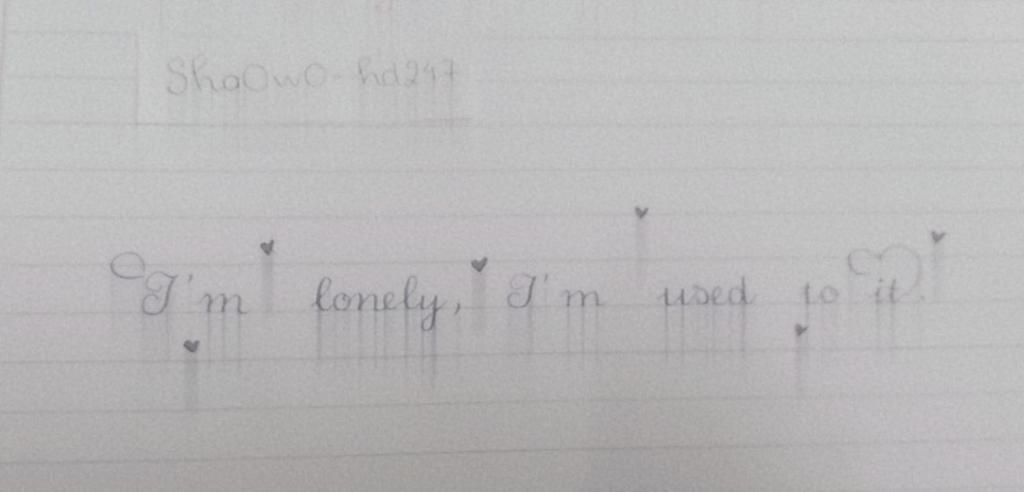 ShaOwO-hd247
I'm lonely, I'm used to it.